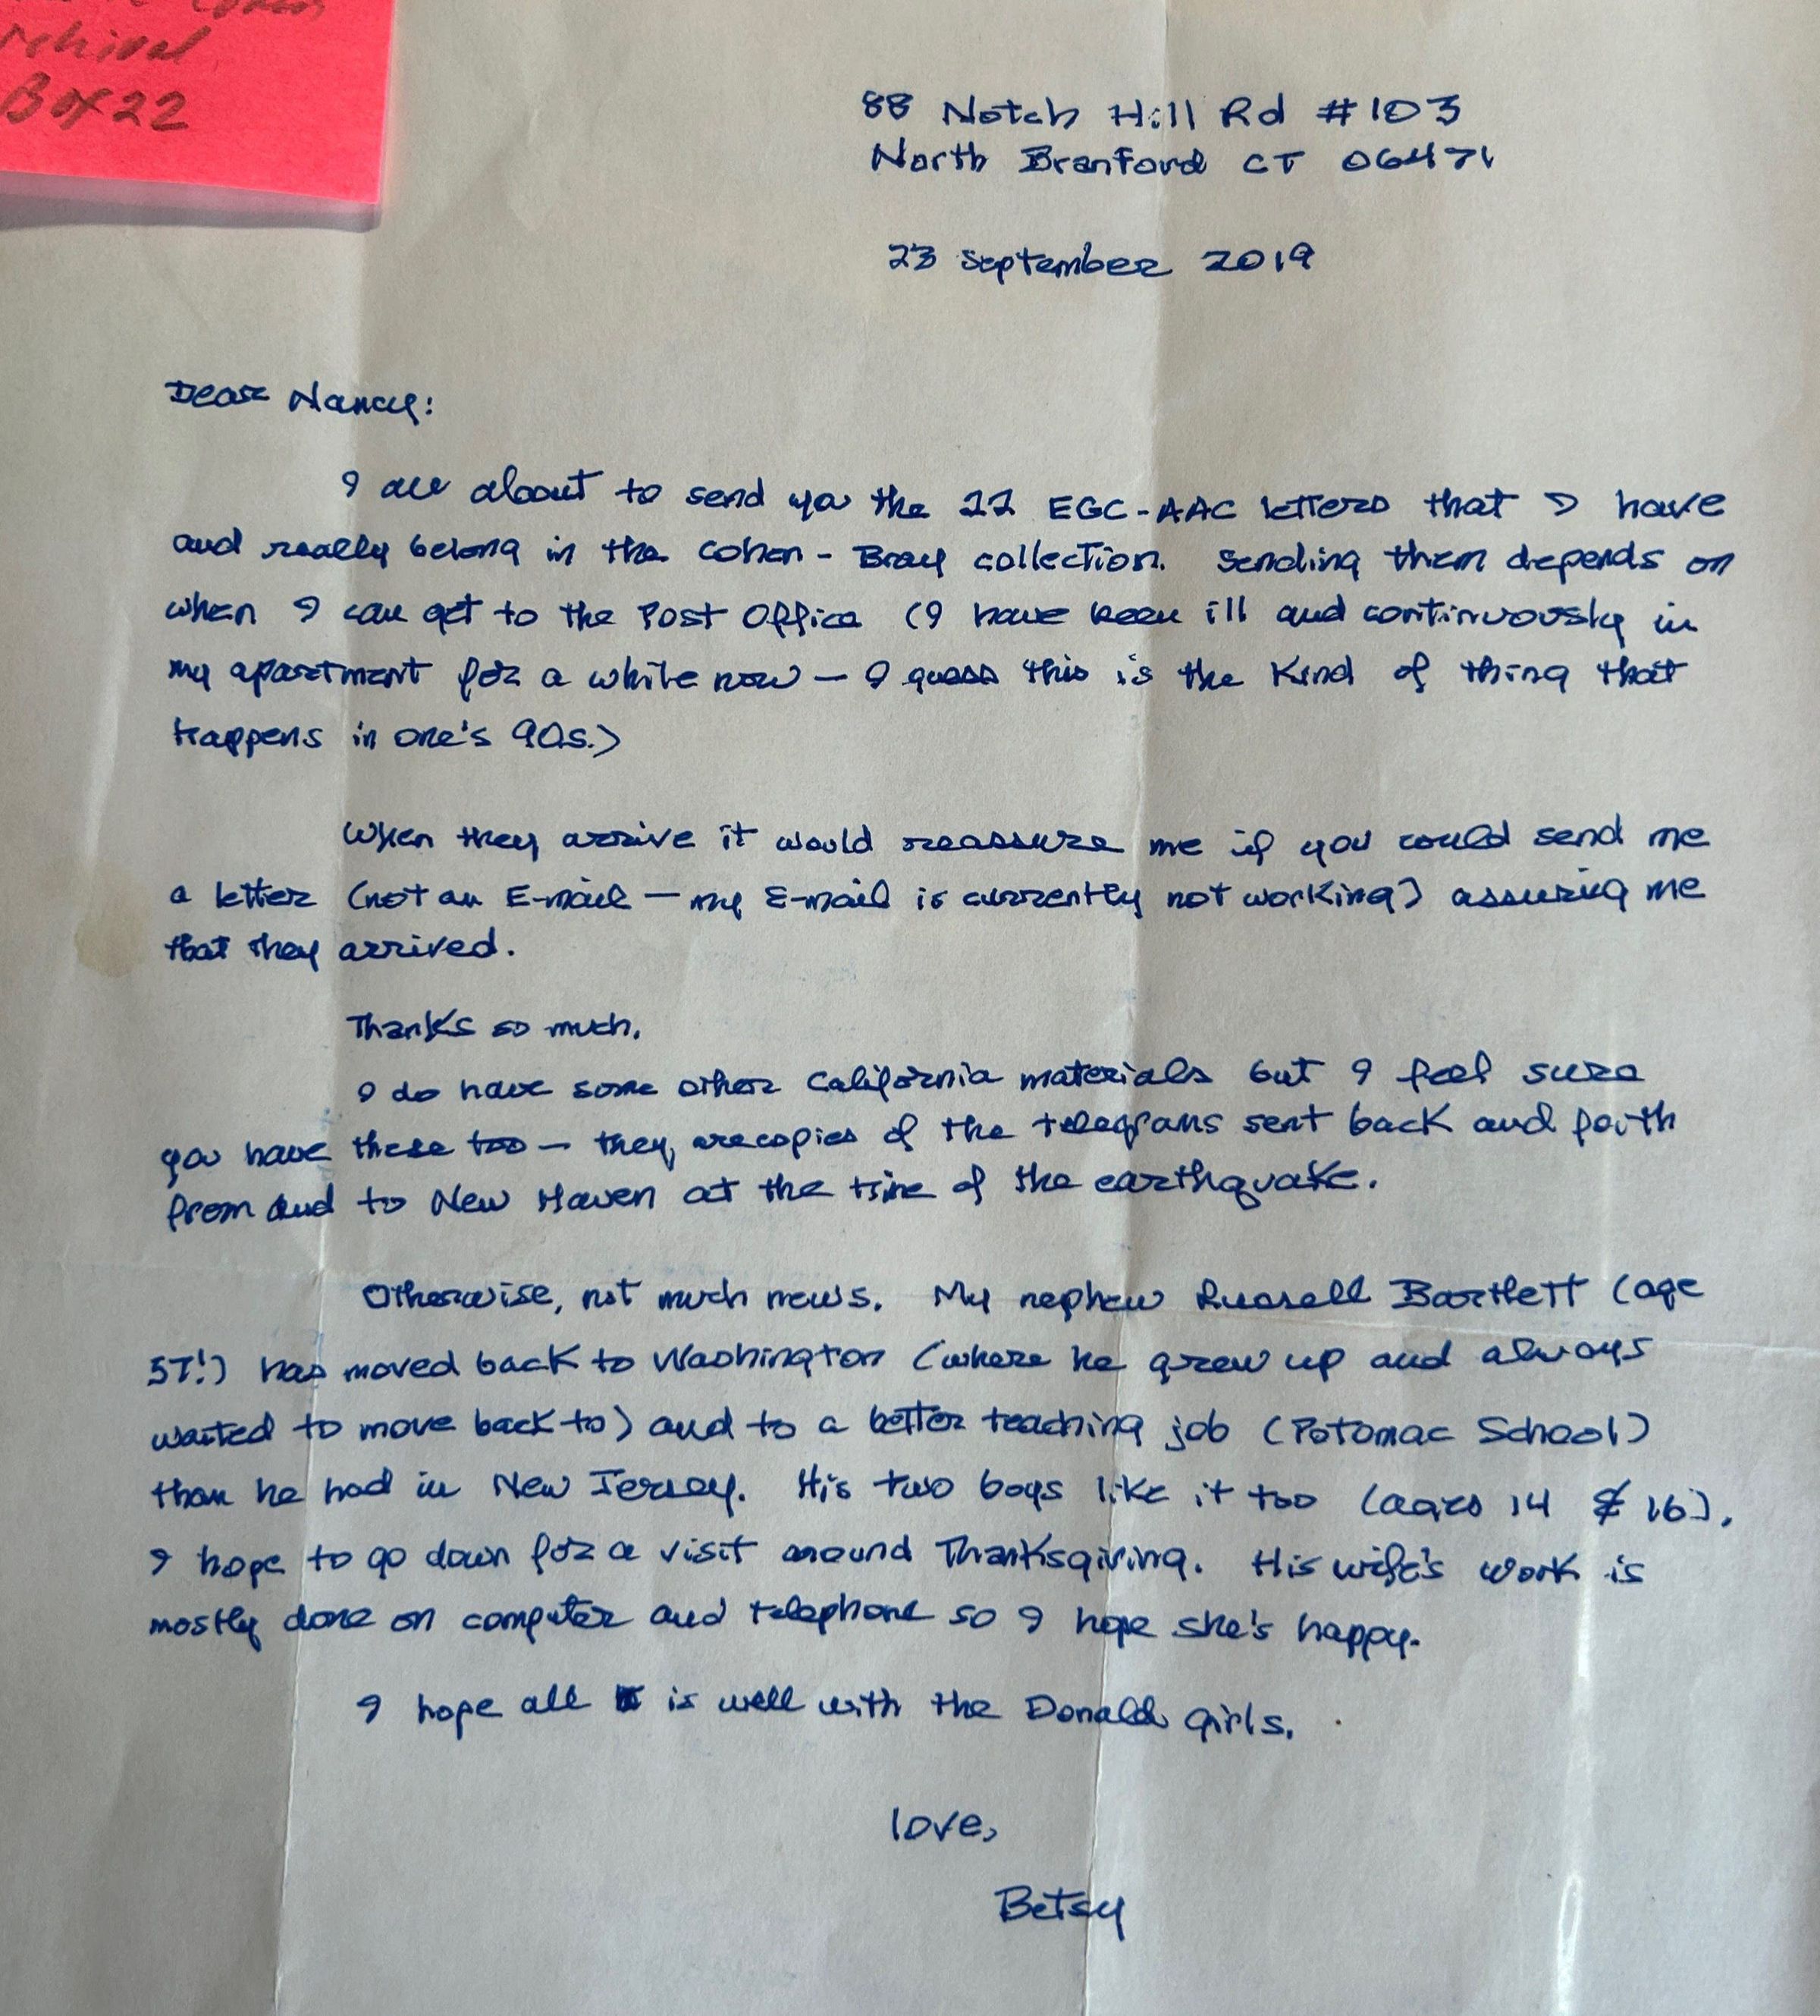 Box 22
88 Notch Hill Rd #103
North Branford CT 06471
23 September 2019
Dear Nancy:
I am about to send you the 22 EGC-AAC letters that I have
and really belong in the Cohen-Bray collection. Sending them depends on
when I can get to the Post Office (I have been ill and continuously in
my apartment for a while now — I guess this is the kind of thing that
happens in one's 90s.)
When they arrive it would reassure me if you could send me
a letter (not an E-mail — my E-mail is currently not working) assuring me
that they arrived.
Thanks so much.
I do have some other California materials but I feel sure
you have these too — they are copies of the telegrams sent back and forth
from and to New Haven at the time of the earthquake.
Otherwise, not much news. My nephew Russell Bartlett (age
57!) has moved back to Washington (where he grew up and always
wanted to move back to) and to a better teaching job (Potomac School)
than he had in New Jersey. His two boys like it too (ages 14 & 16).
I hope to go down for a visit around Thanksgiving. His wife's work is
mostly done on computer and telephone so I hope she's happy.
I hope all is well with the Donald girls.
love,
Betsy